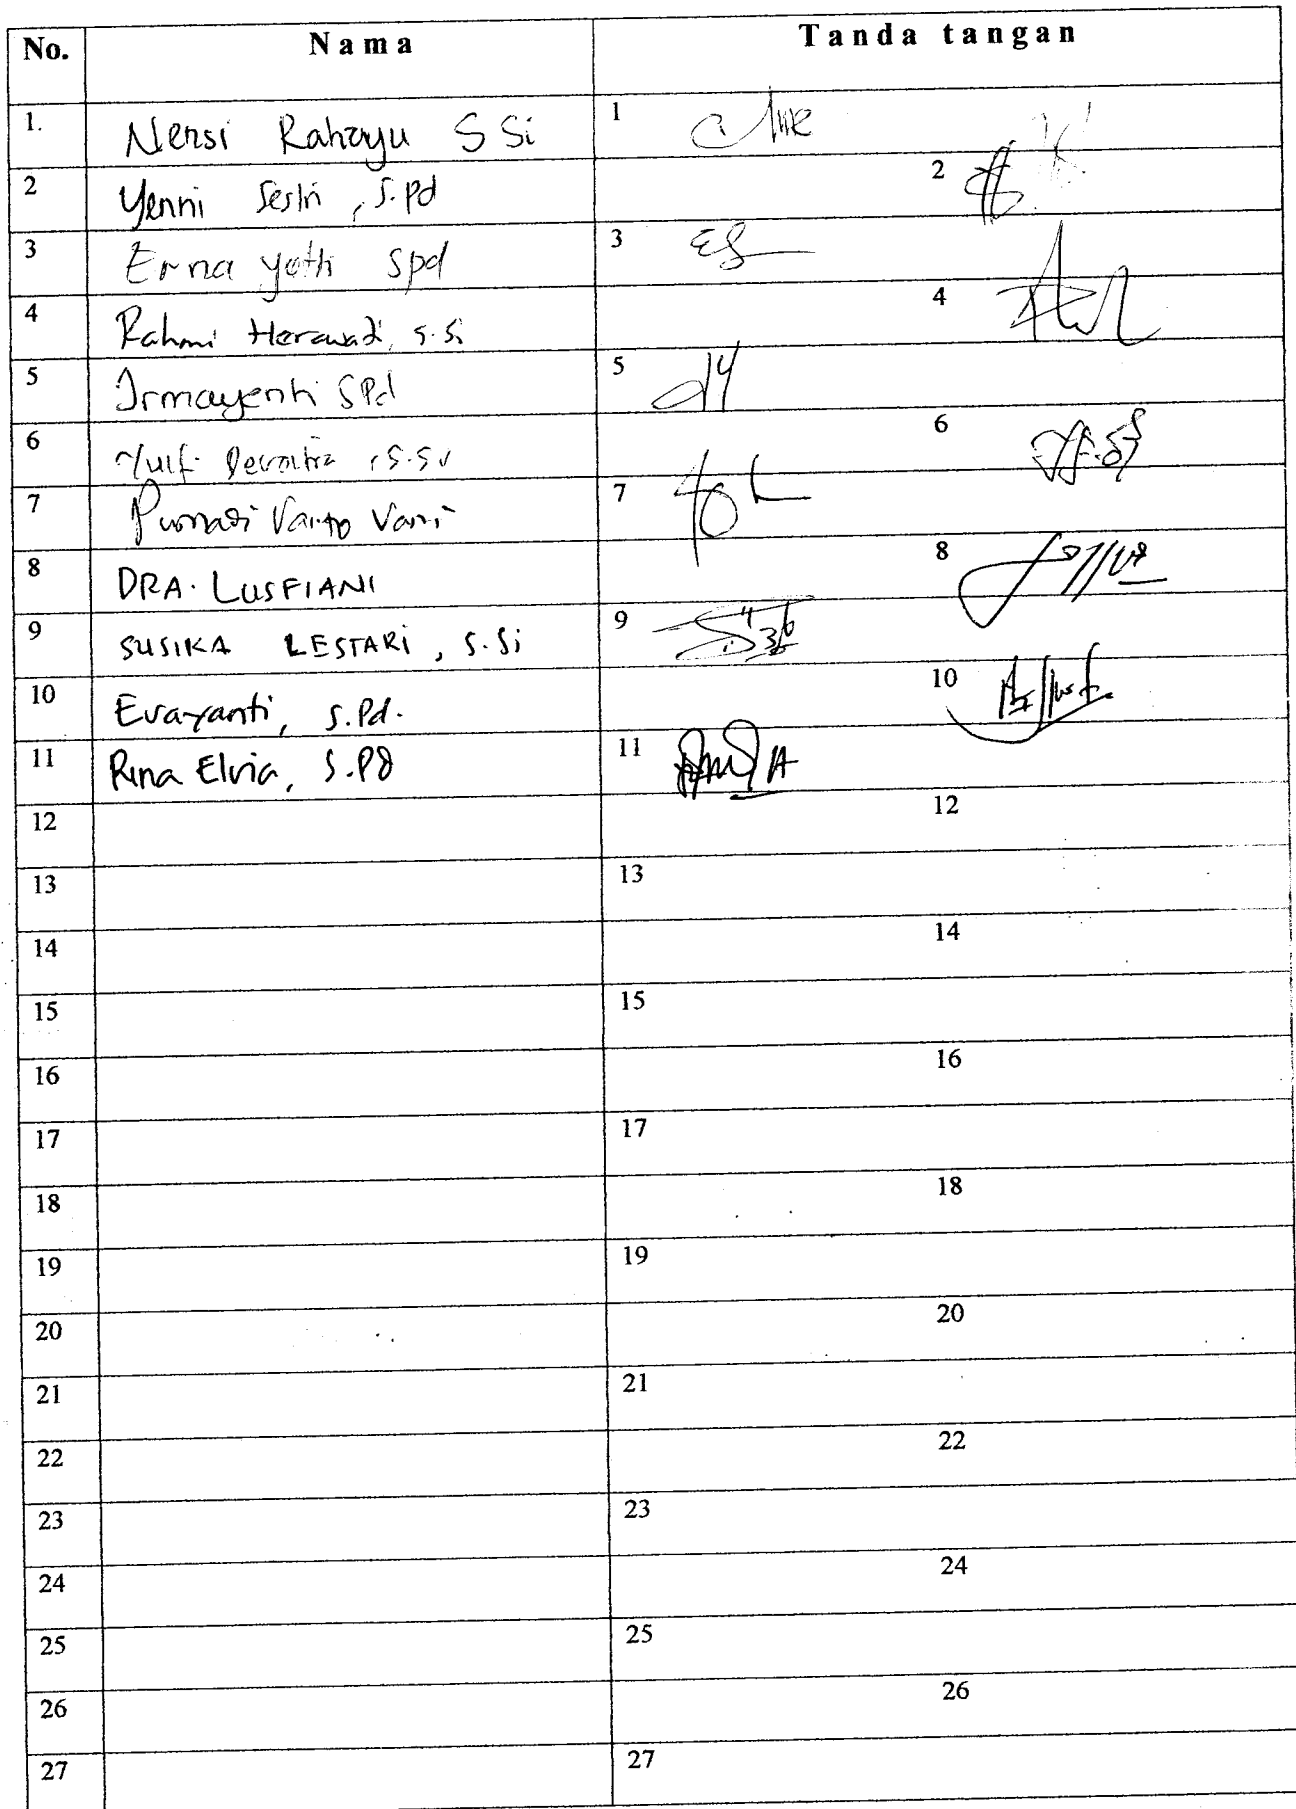 No. Nama Tanda tangan
1. Nensi Rahayu S Si 1
2 Yenni Sestri, S.Pd 2
3 Erna Yeth Spd 3
4 Rahmi Herawati, S.Si 4
5 Irmayenti SPd 5
6 Yulf S.Si 6
7 7
8 DRA. LUSFIANI 8
9 SUSIKA LESTARI, S.Si 9
10 Evayanti, S.Pd. 10
11 Rina Elvia, S.Pd 11
12 12
13 13
14 14
15 15
16 16
17 17
18 18
19 19
20 20
21 21
22 22
23 23
24 24
25 25
26 26
27 27